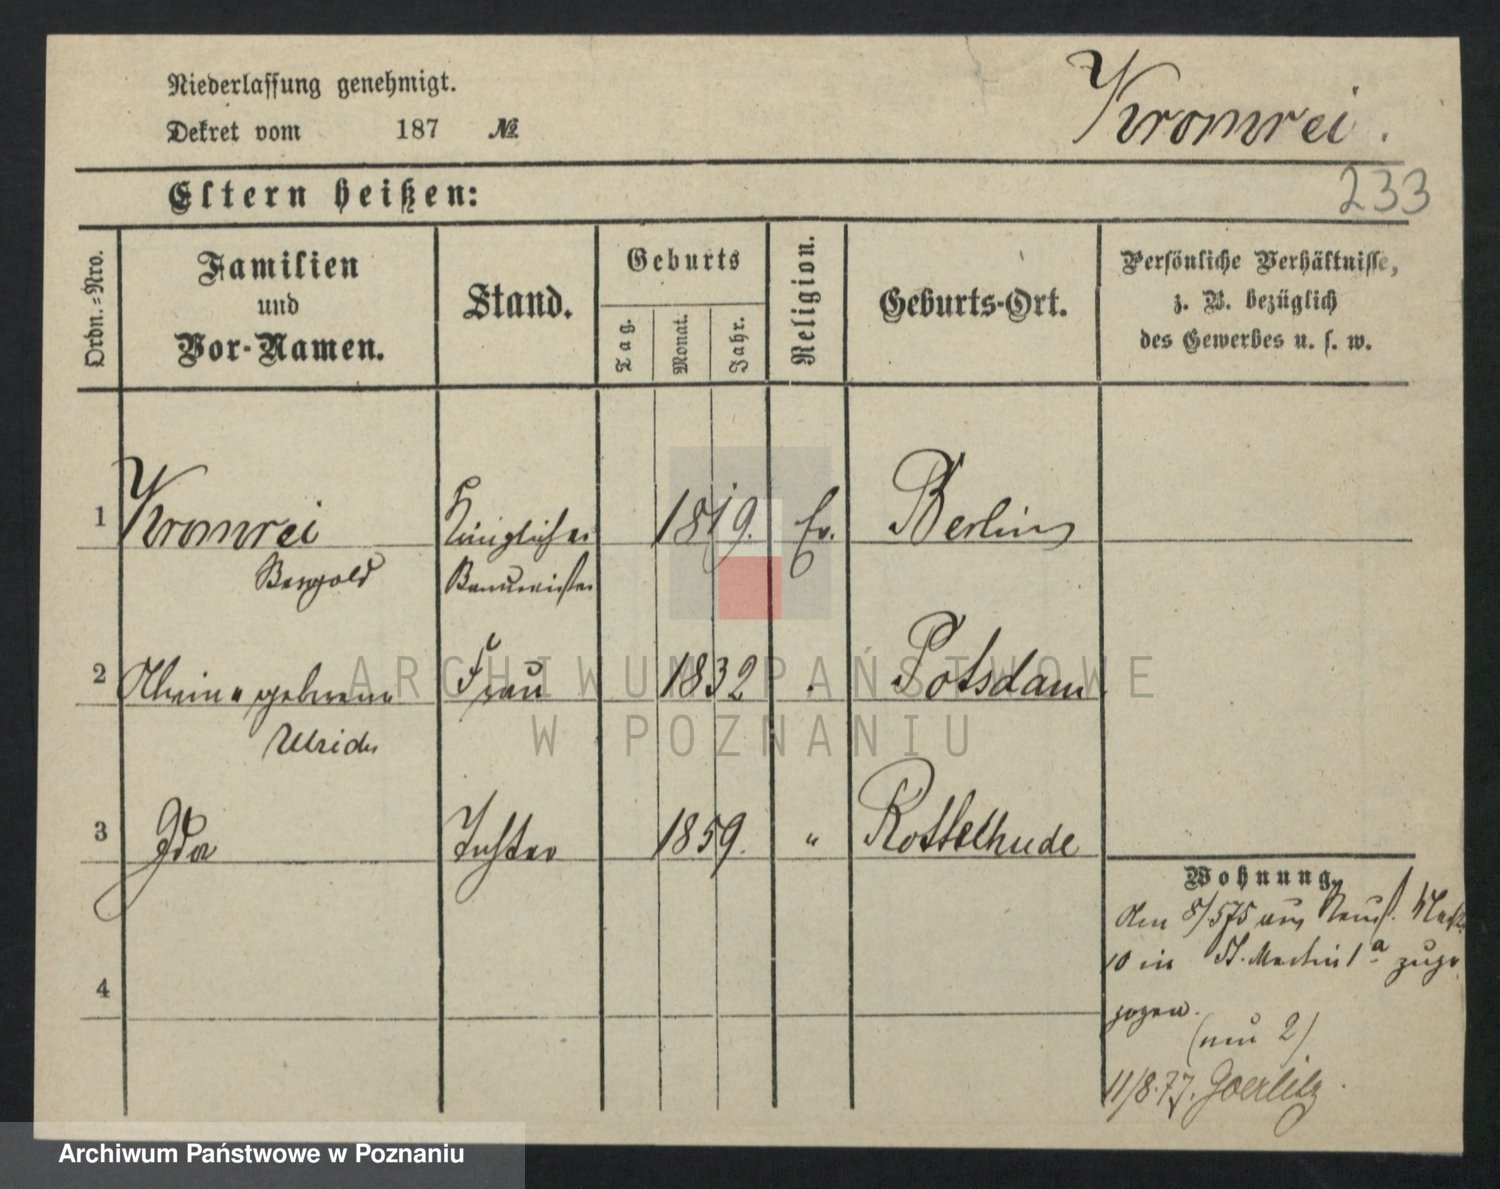 Niederlassung genehmigt.
Kromrei.
Dekret vom 187 №
Eltern heißen:
233
Ordn.-Nro.
Familien
und
Vor-Namen.
Stand.
Geburts
Tag.
Monat.
Jahr.
Religion.
Geburts-Ort.
Persönliche Verhältnisse,
z. B. bezüglich
des Gewerbes u. s. w.
1 Kromrei Königlicher 1819. Ev. Berlin
Baumeister
2 geborene Frau 1832 Potsdam
3 Ida Tochter 1859. " Rottelhude
Wohnung.
Am 8/575 aus
10 in St. Martin 1a zuge
zogen.
4
(neu 2)
11/8.77. Goerlitz.
ARCHIWUM PAŃSTWOWE
W POZNANIU
Archiwum Państwowe w Poznaniu